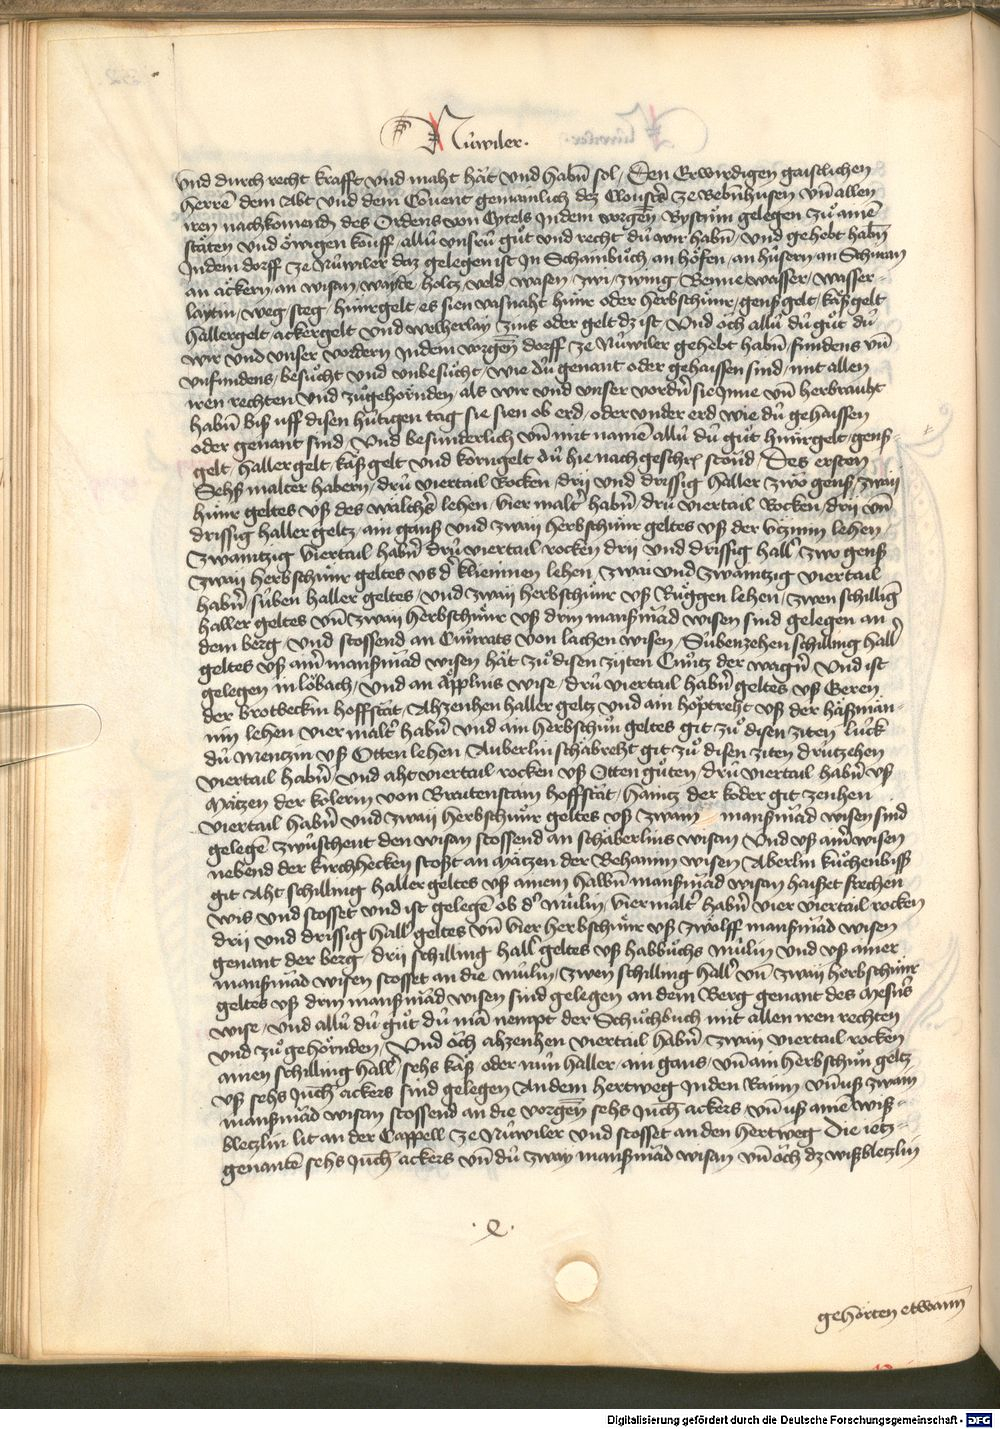 Nùwiler.
vnd durch recht krafft vnd maht hăt vnd habn̄ sol / Den Erwirdigen gaistlichen
herrē dem Abt vnd dem Couent gemainlich dez Closters ze Bebn̄husen vn̄ allen
iren nachkomend des Ordens von Cytels Jn dem vorgen̄ Bystům gelegen zů ainē
stäten vnd ǒwigen kouff / allů vnsrů gůt vnd recht dů wir habn̄ / vnd gehebt habn̄
Jn dem dorff ze Nùwiler daz gelegen ist Jn Schainbůch an höfen / an hùsern an Schùran
an äckern / an wisan / wayde / holtz / veld / wasen / zwi / zwing Benne / wasser / wasser-
laytin / weg / steg / hùnrgelt es sien vasnaht hùnr oder herbschùnr / genßgelt / käßgelt
hallergelt / ackergelt vnd welherlay zins oder gelt dz ist Vnd öch allù dù gůt dù
wir vnd vnser vordern Jn dem vorgen̄ dorff ze Nùwiler gehebt habn̄ / fundens vn̄
vnfundens / besůcht vnd vnbesůcht / wie dù genant oder gehaissen sind / mit allen
iren rechten vnd zůgehörnden / als wir vnd vnser vordn̄ sie Jnne vn̄ herbrauht
habn̄ biß uff disen hùtigen tag sie sien ob erd / oder vnder erd wie dù gehaissen
oder genant sind / Vnd besunderlich vn̄ mit namē allù dù gůt hùnrgelt / genß-
gelt / hallergelt / käßgelt vnd korngelt dù hie nach geschrı stond / Des ersten
Sehß malter habern / drù viertail Rocken / drij vnd drissig haller zwo genß / zwaij
hùnr geltes vß des wälchs lehen / vier malt' habn̄ / drù viertail Rocken / drij vn̄
drissig haller geltz / ain ganß vnd zwaij herbschùnr geltes vß der vtzinun lehen
zwaintzig viertail habn̄ drù viertail rocken drij vnd drissig hall' zwo genß
zwaij herbschùnr geltes vs d' kliennen lehen / zwai vnd zwaintzig viertail
habn̄ / siben haller geltes / vnd zwaij herbschùnr vß Rùggen lehen / zwen schillig
haller geltes vn̄ zwaij herbschùnr vß drin manßmăd wisen sind gelegen an
dem berg / vnd stossend an Cůnrats von lachen wisen / Sùbenzehen schilling hall'
geltes vß ainr manßmăd wisen hăt zů disen ziiten Cůntz der wagn̄ Vnd ist
gelegen in löbach / vnd an äpplins wise / drù viertail habn̄ geltes vß Geren
der brotbeckin hoffstăt / Ahzenhen haller geltz vnd ain hoptreht vß der häßmän-
nin lehen vier malt' habn̄ vnd ain herbschùn geltes git zů disen ziten lùck
dù Mentzin vß Otten lehen / Auberlin schäbreht git zů disen ziten drùtzehen
viertail habn̄ / vnd aht viertail rocken vß Otten gůten / drù viertail habn̄ vß
Mätzen der kolerin von Braitenstain hoffstăt / haintz der koder git zenhen
viertail habn̄ vnd zwaij herbschùnr geltes vß zwain manßmăd wisen sind
gelegē zwùschent den wisan stossend an schäberlins wisan Vnd vß ainr wisen
nebend der kirchhecken stoßt an Mätzen der Behamin wisen Aberlin kůchenbiss
git Aht schilling haller geltes vß ainem halbn̄ manßmăd wisan haisset frechen
wis vnd stosset vnd ist gelegē ob d' mùlin / vier malt' habn̄ vier viertail rocken
drij vnd drissig hall' geltes vn̄ vier herbschùnr vß zwölff manßmăd wisen
genant der berg / drij schilling hall' geltes vß habbůchs mùlin vnd vß ainer
manßmăd wisen stosset an die mùlin / zwen schilling hall' vn̄ zwaij herbschùnr
geltes vß drin manßmăd wisen sind gelegen an dem Berg genant des Mesnrs
wise / vnd allù dù gůt dù mā nempt der Schůchbuch mit allen iren rechten
vnd zůgehörnden / Vnd öch ahzenhen viertail habn̄ / zwai viertail rocken
ainen schilling hall' / sehs käß oder nùn haller / ain gans / vn̄ ain herbschùn geltz
vß sehs Juch ackers sind gelegen An dem hertweg Jn den Rainn vn̄ uß zwain
manßmăd wisan stossend an die vorgen̄ sehs Juch ackers / vn̄ uß ainē wiß-
bletzlin lit an der Cappell ze Nùwiler vnd stosset an den hertweg Die ietz-
genantē sehs Juch ackers vn̄ dù zway manßmăd wisan vn̄ öch dz wißbletzlin
gehörten etwann
Digitalisierung gefördert durch die Deutsche Forschungsgemeinschaft - DFG